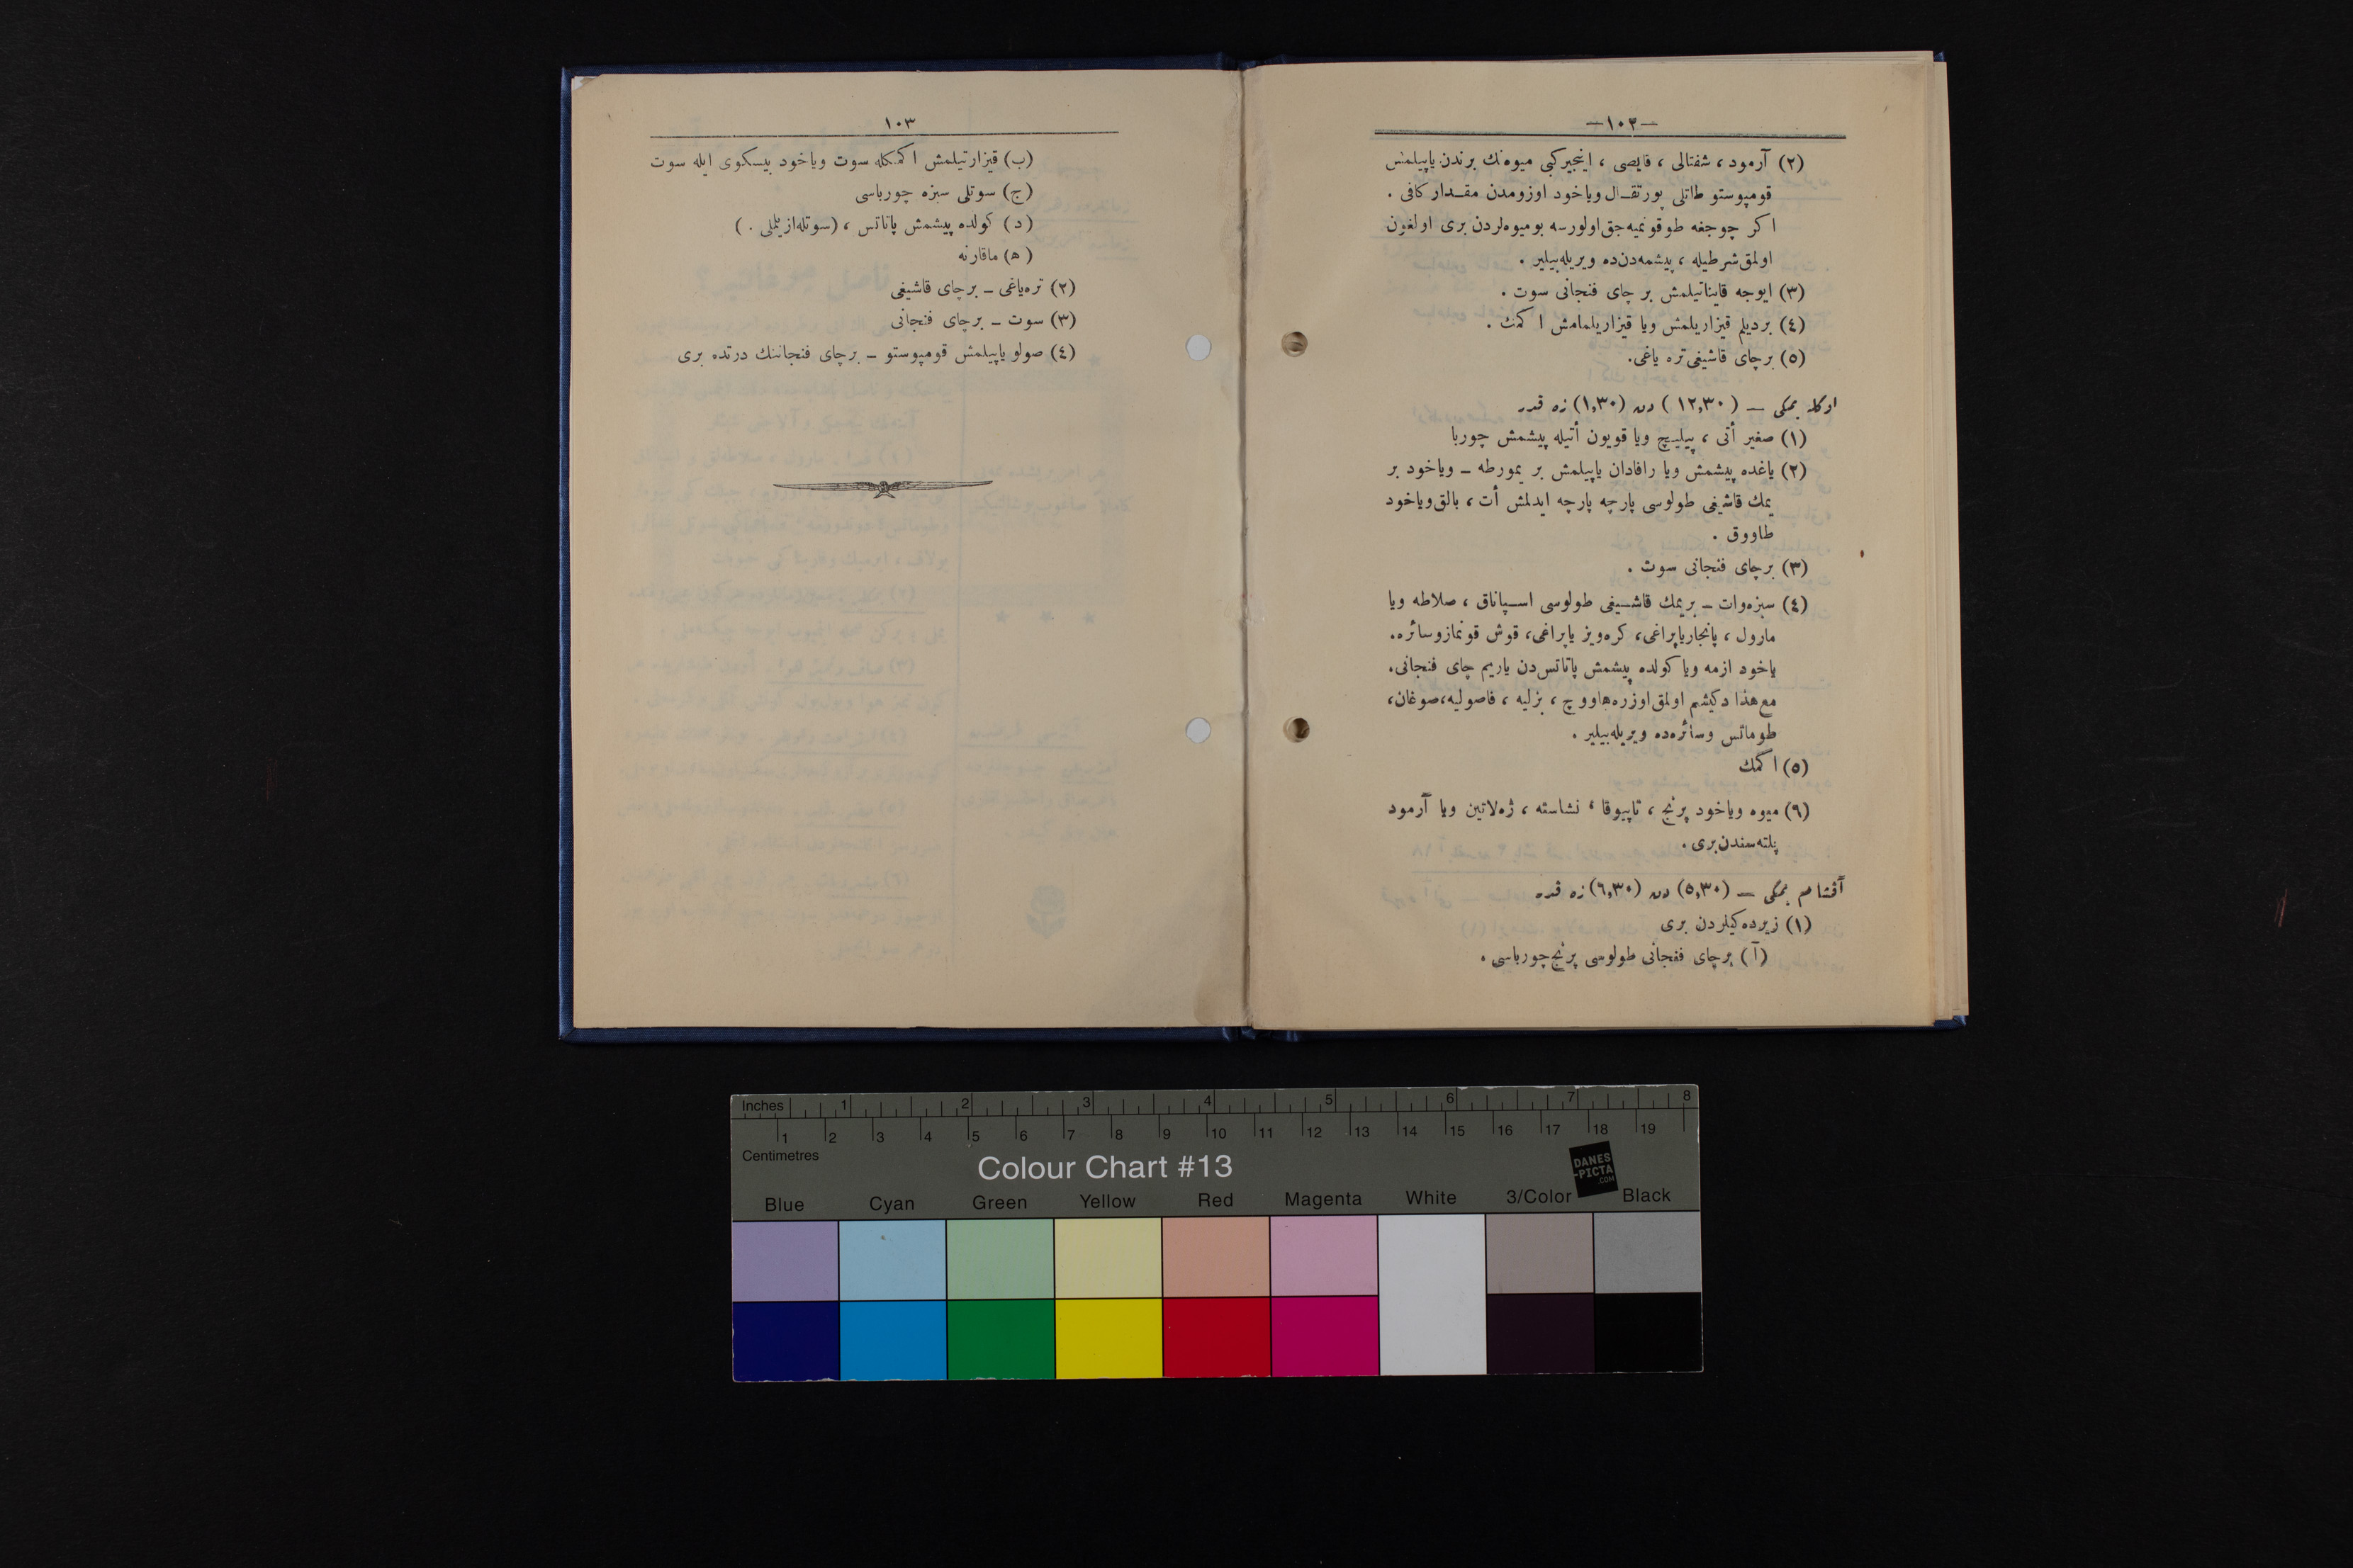 —١٠٢—
(٢) آرمود ، شفتالى ، قايصى ، اينجيركبى ميوه‌نك برندن ياپيلمش
قومپوستو طاتلى پورتقـال وياخود اوزومدن مقـدار كافى .
اكر چوجغه طوقونميه‌جق‌اولورسه بوميوه‌لردن برى اولغون
اولمق‌شرطيله ، پيشمه‌دن‌ده ويريله‌بيلير .
(٣) ايوجه قايناتيلمش بر چاى فنجانى سوت .
(٤) برديلم قيزاريلمش ويا قيزاريلمامش اكمك .
(٥) برچاى قاشيغى‌تره ياغى.
اوكله يمكى — (١٢,٣٠) دن (١,٣٠) زه قدر
(١) صغير أتى ، پيليـچ ويا قويون أتيله پيشمش چوربا
(٢) ياغده پيشمش ويا رافادان ياپيلمش بر يمورطه – وياخود بر
يمك قاشيغى طولوسى پارچه پارچه ايدلمش أت ، بالق‌وياخود
طاووق .
(٣) برچاى فنجانى سوت .
(٤) سبزه‌وات – بريمك قاشـيغى طولوسى اسـپاناق ، صلاطه ويا
مارول ، پانجارياپراغى، كره‌ويز ياپراغى، قوش قونمازوسائره.
ياخود ازمه ويا كولده پيشمش پاتاتس‌دن ياريم چاى فنجانى.
مع‌هذا دكيشم اولمق‌اوزره‌هاووچ ، بزليه ، فاصوليه،صوغان،
طوماتس وسائره‌ده ويريله‌بيلير .
(٥) اكمك
(٦) ميوه وياخود پرنج ، تاپيوقا ، نشاسته ، ژه‌لاتين ويا آرمود
پلته‌سندن‌برى .
آقشام يمكى — (٥,٣٠) دن (٦,٣٠) زه قدر
(١) زيرده‌كيلردن برى
(آ) برچاى فنجانى طولوسى پرنج‌چورباسى .
١٠٣
(ب) قيزارتيلمش اكمكله سوت وياخود بيسكوى ايله سوت
(ج) سوتلى سبزه چورباسى
(د) كولده پيشمش پاتاتس ، (سوتله‌ازيلملى .)
(ه) ماقارنه
(٢) تره‌ياغى – برچاى قاشيغى
(٣) سوت – برچاى فنجانى
(٤) صولو ياپيلمش قومپوستو – برچاى فنجاننك درتده برى
Inches 1 2 3 4 5 6 7 8
1 2 3 4 5 6 7 8 9 10 11 12 13 14 15 16 17 18 19
Centimetres
Colour Chart #13
DANES
-PICTA
.COM
Blue Cyan Green Yellow Red Magenta White 3/Color Black